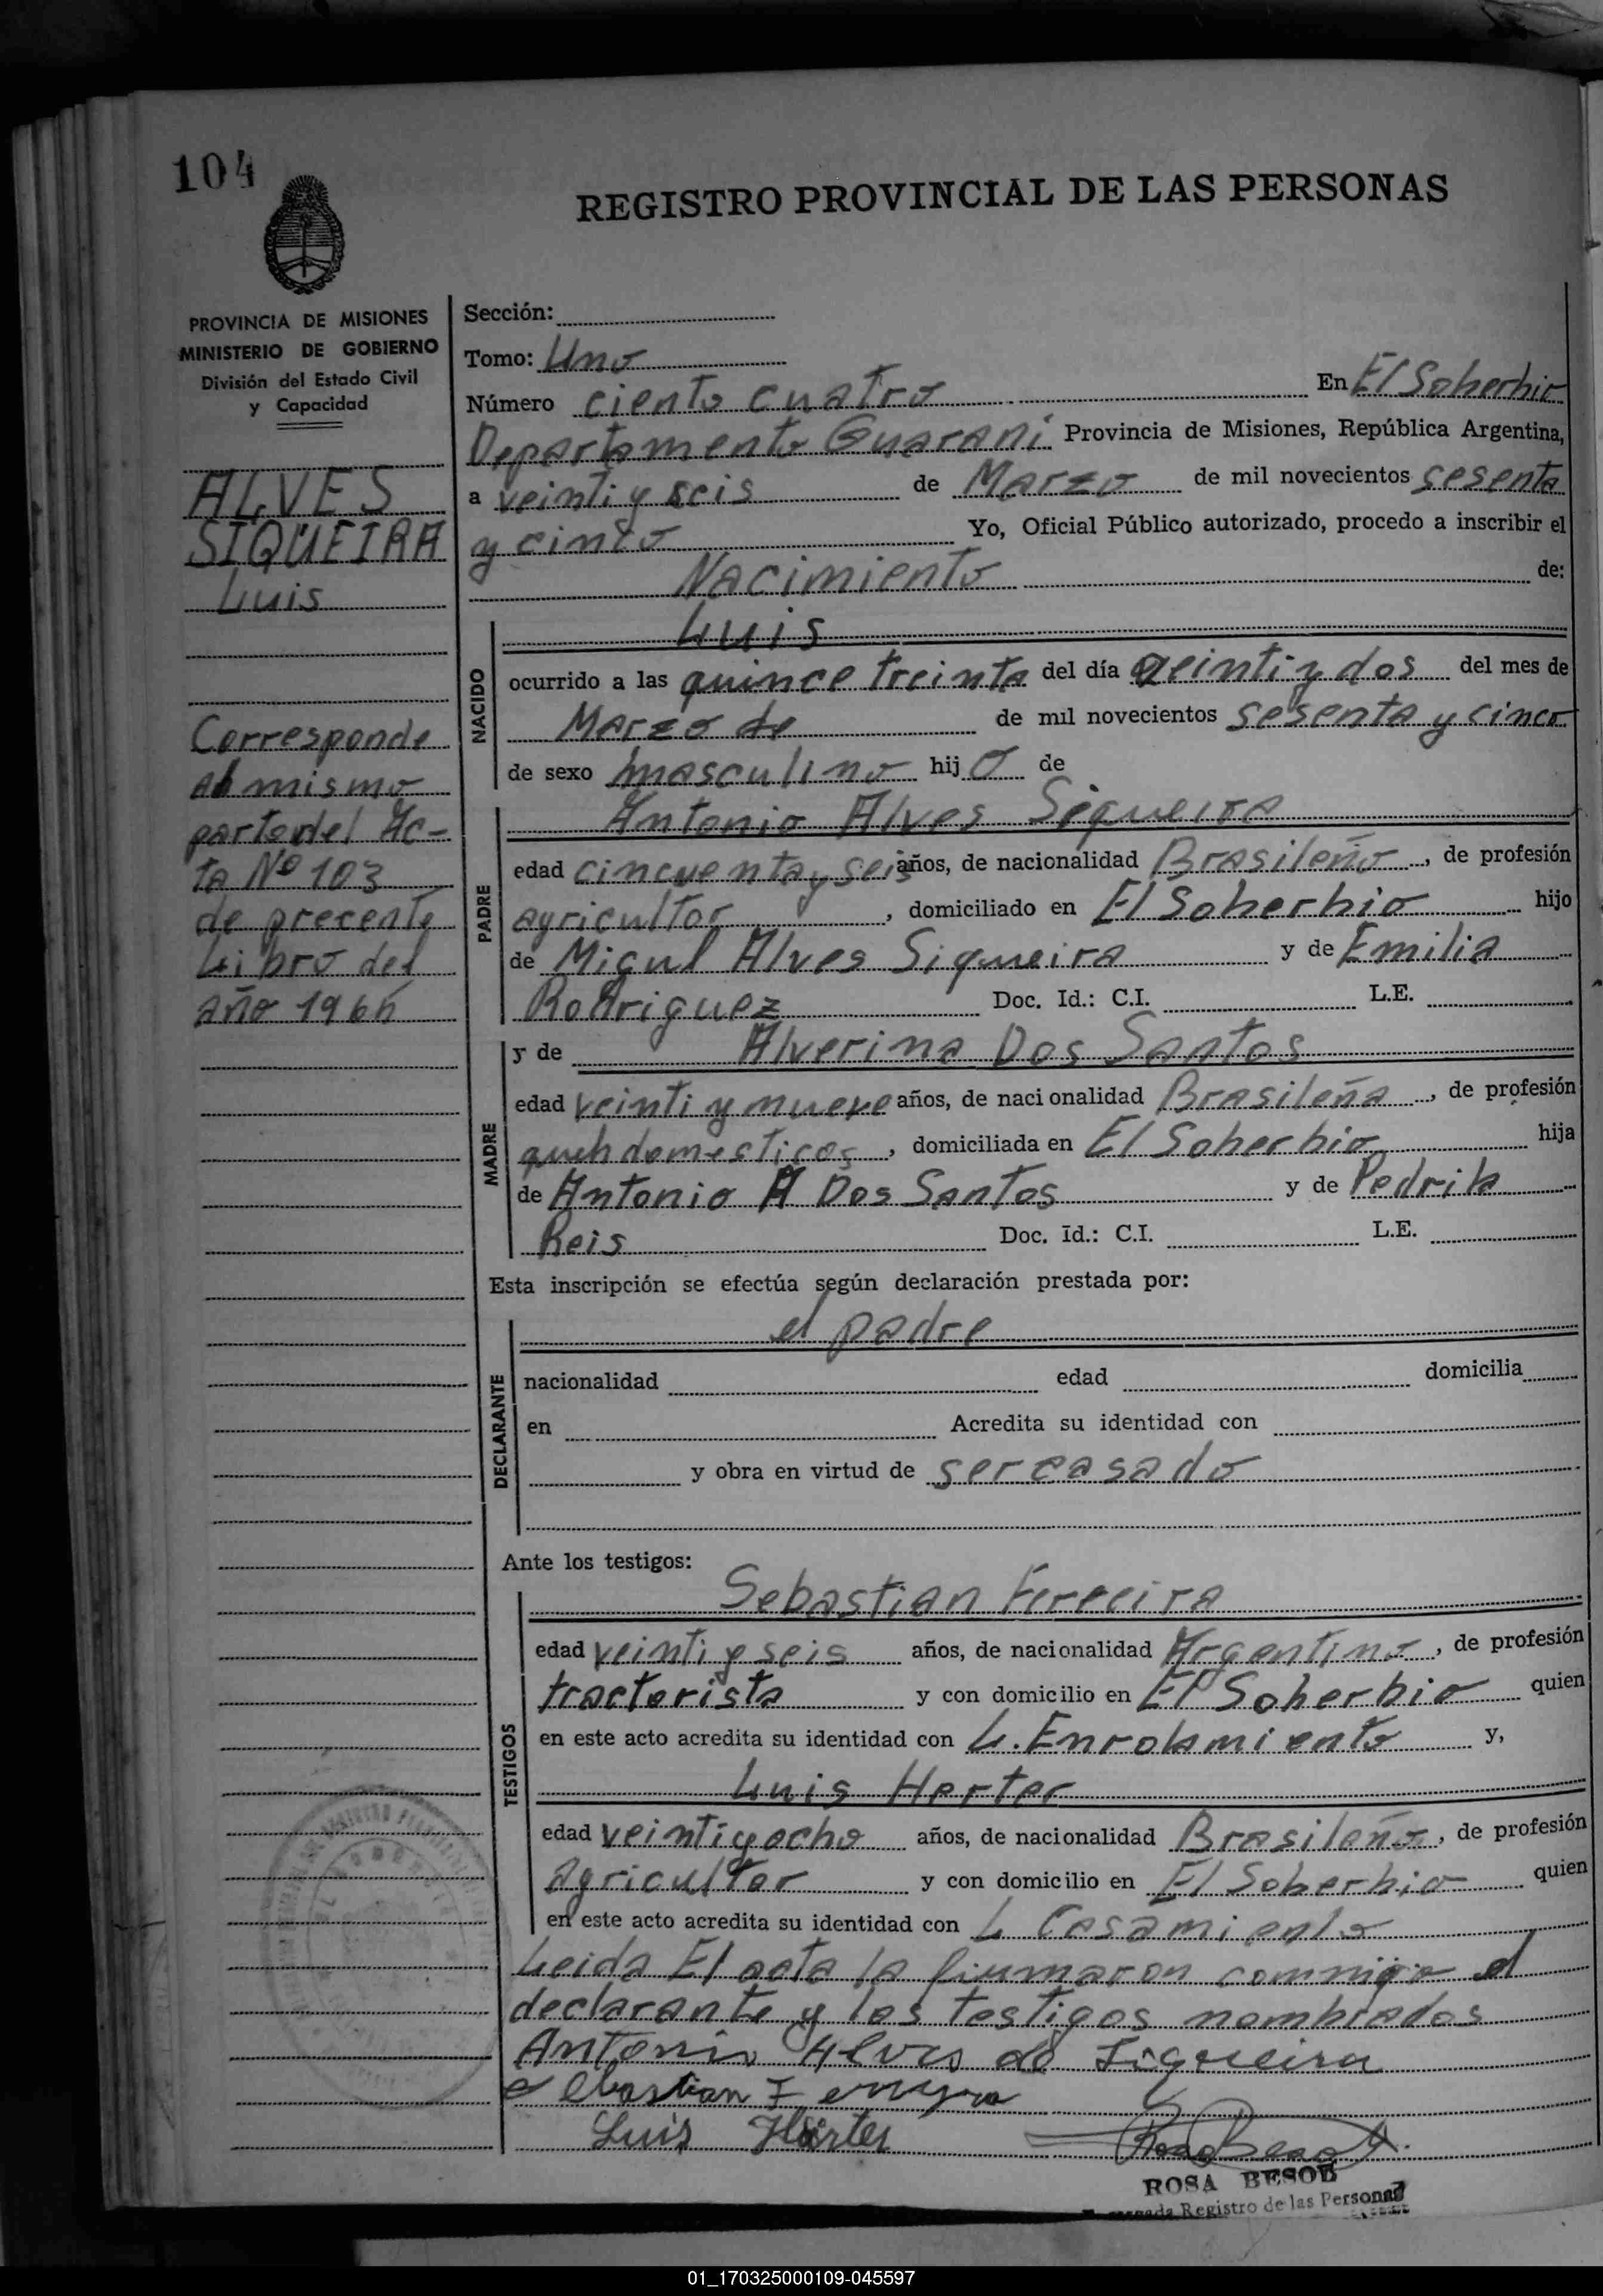 104
REGISTRO PROVINCIAL DE LAS PERSONAS
PROVINCIA DE MISIONES
MINISTERIO DE GOBIERNO
División del Estado Civil
y Capacidad
ALVES
SIQUEIRA
Luis
Corresponde
al mismo
parto del Ac-
ta Nº 103
de precente
Libro del
año 1965
Sección:
Tomo: Uno
Número ciento cuatro En El Soherbio
Departamento Guarani Provincia de Misiones, República Argentina,
a veinti y seis de Marzo de mil novecientos sesenta
y cinco Yo, Oficial Público autorizado, procedo a inscribir el
Nacimiento de:
NACIDO
Luis
ocurrido a las quince treinta del día veinti y dos del mes de
Marzo de de mil novecientos sesenta y cinco
de sexo masculino hijo de
PADRE
Antonio Alves Siqueira
edad cincuenta y seis años, de nacionalidad Brasileño, de profesión
agricultor, domiciliado en El Soherbio hijo
de Micul Alves Siqueira y de Emilia
Rodriguez Doc. Id.: C.I. L.E.
MADRE
y de Alverina Dos Santos
edad veinti y nueve años, de nacionalidad Brasileña, de profesión
queh domesticos, domiciliada en El Soherbio hija
de Antonio A Dos Santos y de Pedrila
Reis Doc. Id.: C.I. L.E.
Esta inscripción se efectúa según declaración prestada por:
DECLARANTE
el padre
nacionalidad edad domicilia
en Acredita su identidad con
y obra en virtud de ser casado
Ante los testigos:
TESTIGOS
Sebastian Ferreira
edad veinti y seis años, de nacionalidad Argentino, de profesión
tractorista y con domicilio en El Soherbio quien
en este acto acredita su identidad con L. Enrolamiento y,
Luis Herter
edad veinti y ocho años, de nacionalidad Brasileño, de profesión
Agricultor y con domicilio en El Soherbio quien
en este acto acredita su identidad con L Casamiento
Leida El acta la firmaron conmigo el
declarante y los testigos nombrados
Antonio Alves de Siqueira
Sebastian Ferreyra
Luis Härter
ROSA BESOB
Registro de las Personas
01_170325000109-045597